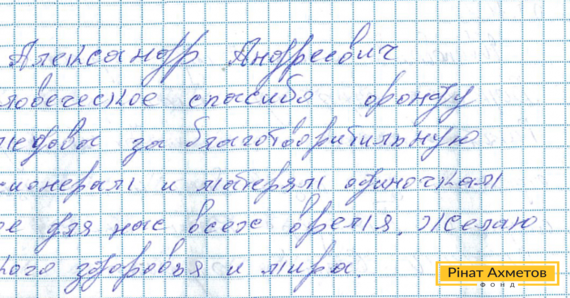 Александр Андреевич
ловеческое спасибо фонду
метова за благотворительную
сионерам и матерям одиночкам
ое для нас всех время. Желаю
кого здоровья и мира.
Рінат Ахметов
ФОНД